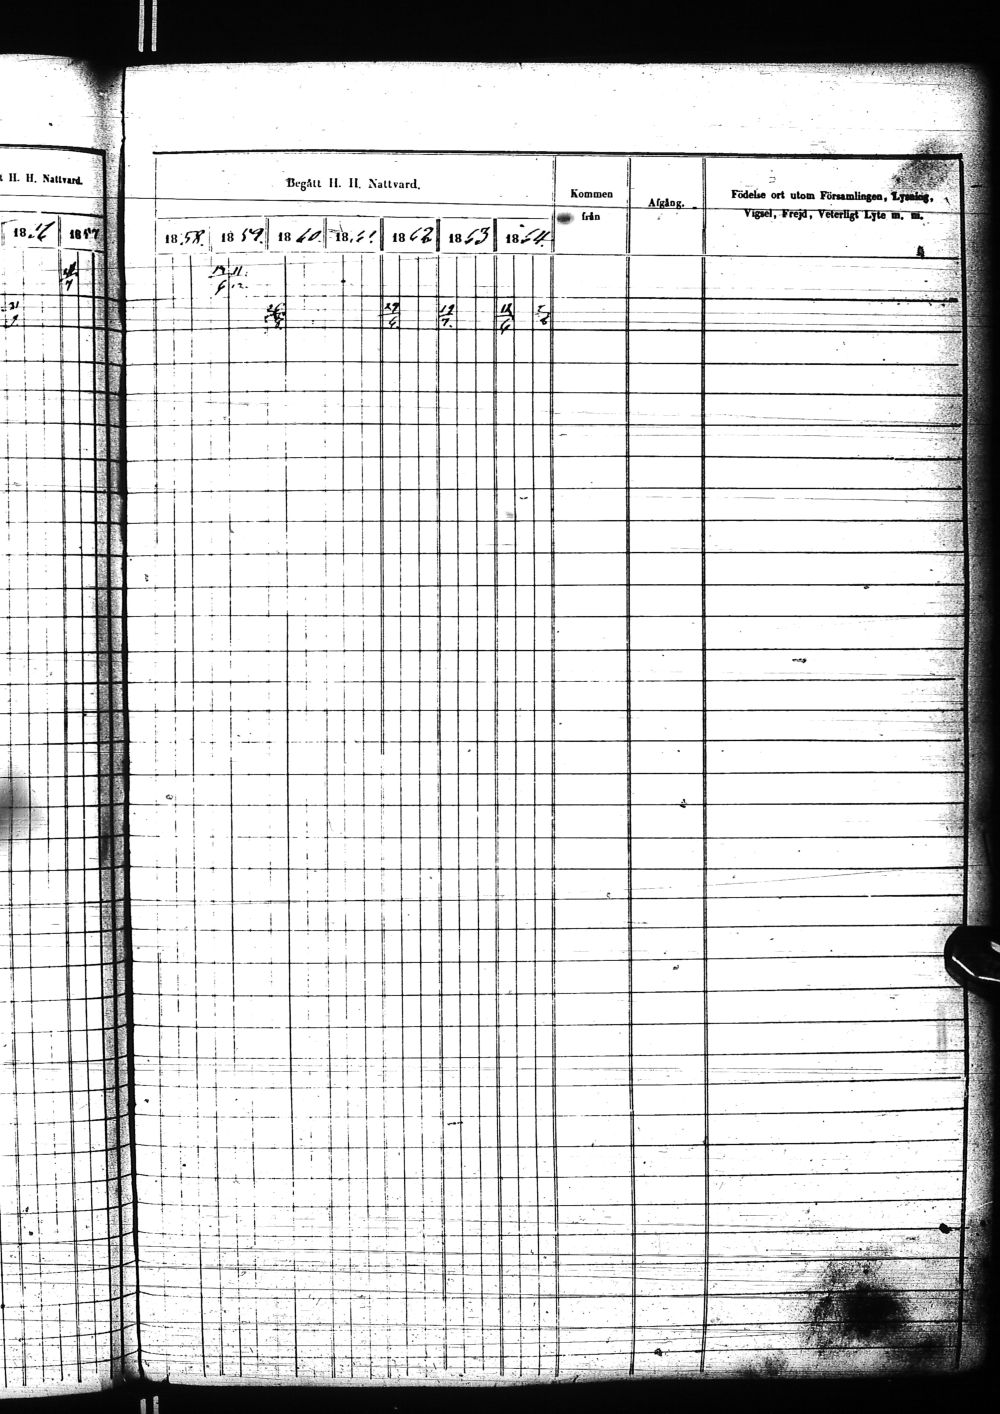 t H. H. Nattvard.
1856 1857
21
7
Begått H. H. Nattvard.
Kommen från
Afgång.
Födelse ort utom Församlingen, Lysning,
Vigsel, Frejd, Veterligt Lyte m. m.
1858. 1859. 1860. 1861. 1862 1863 1864.
11
6 12
29 12
6 7 6